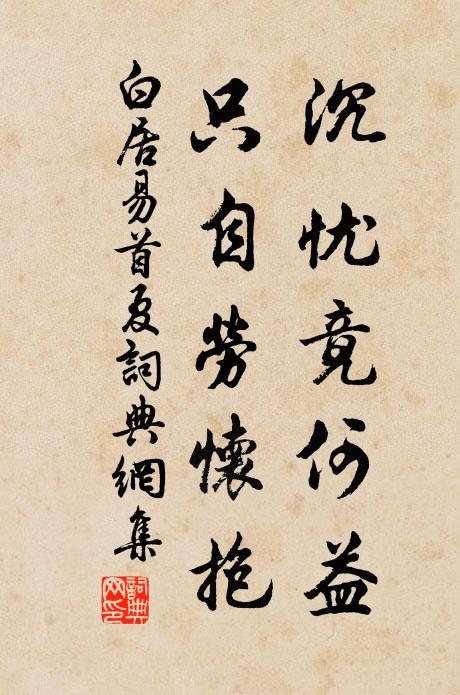 沉忧竟何益
只自勞懷抱
白居易首夏詞典網集
詞典网印